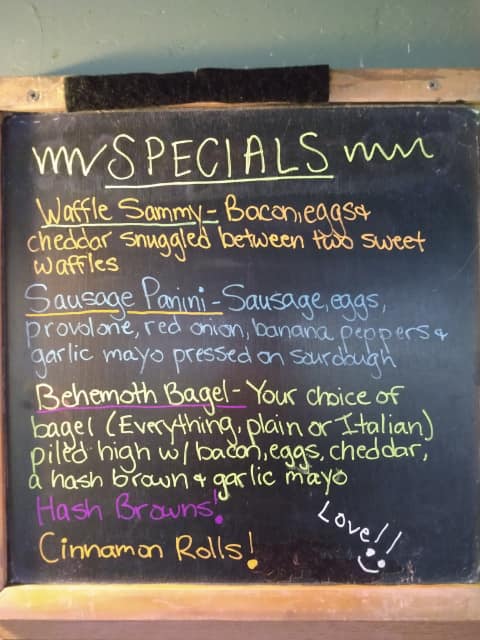 SPECIALS
Waffle Sammy - Bacon, eggs &
cheddar snuggled between two sweet
waffles
Sausage Panini - Sausage, eggs,
provolone, red onion, banana peppers &
garlic mayo pressed on sourdough
Behemoth Bagel - Your choice of
bagel (Everything, plain or Italian)
piled high w/ bacon, eggs, cheddar,
a hash brown & garlic mayo
Hash Browns!
Cinnamon Rolls!
Love!!